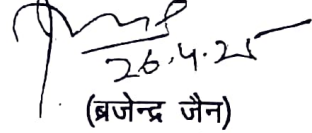 26.4.25
(ब्रजेन्द्र जैन)